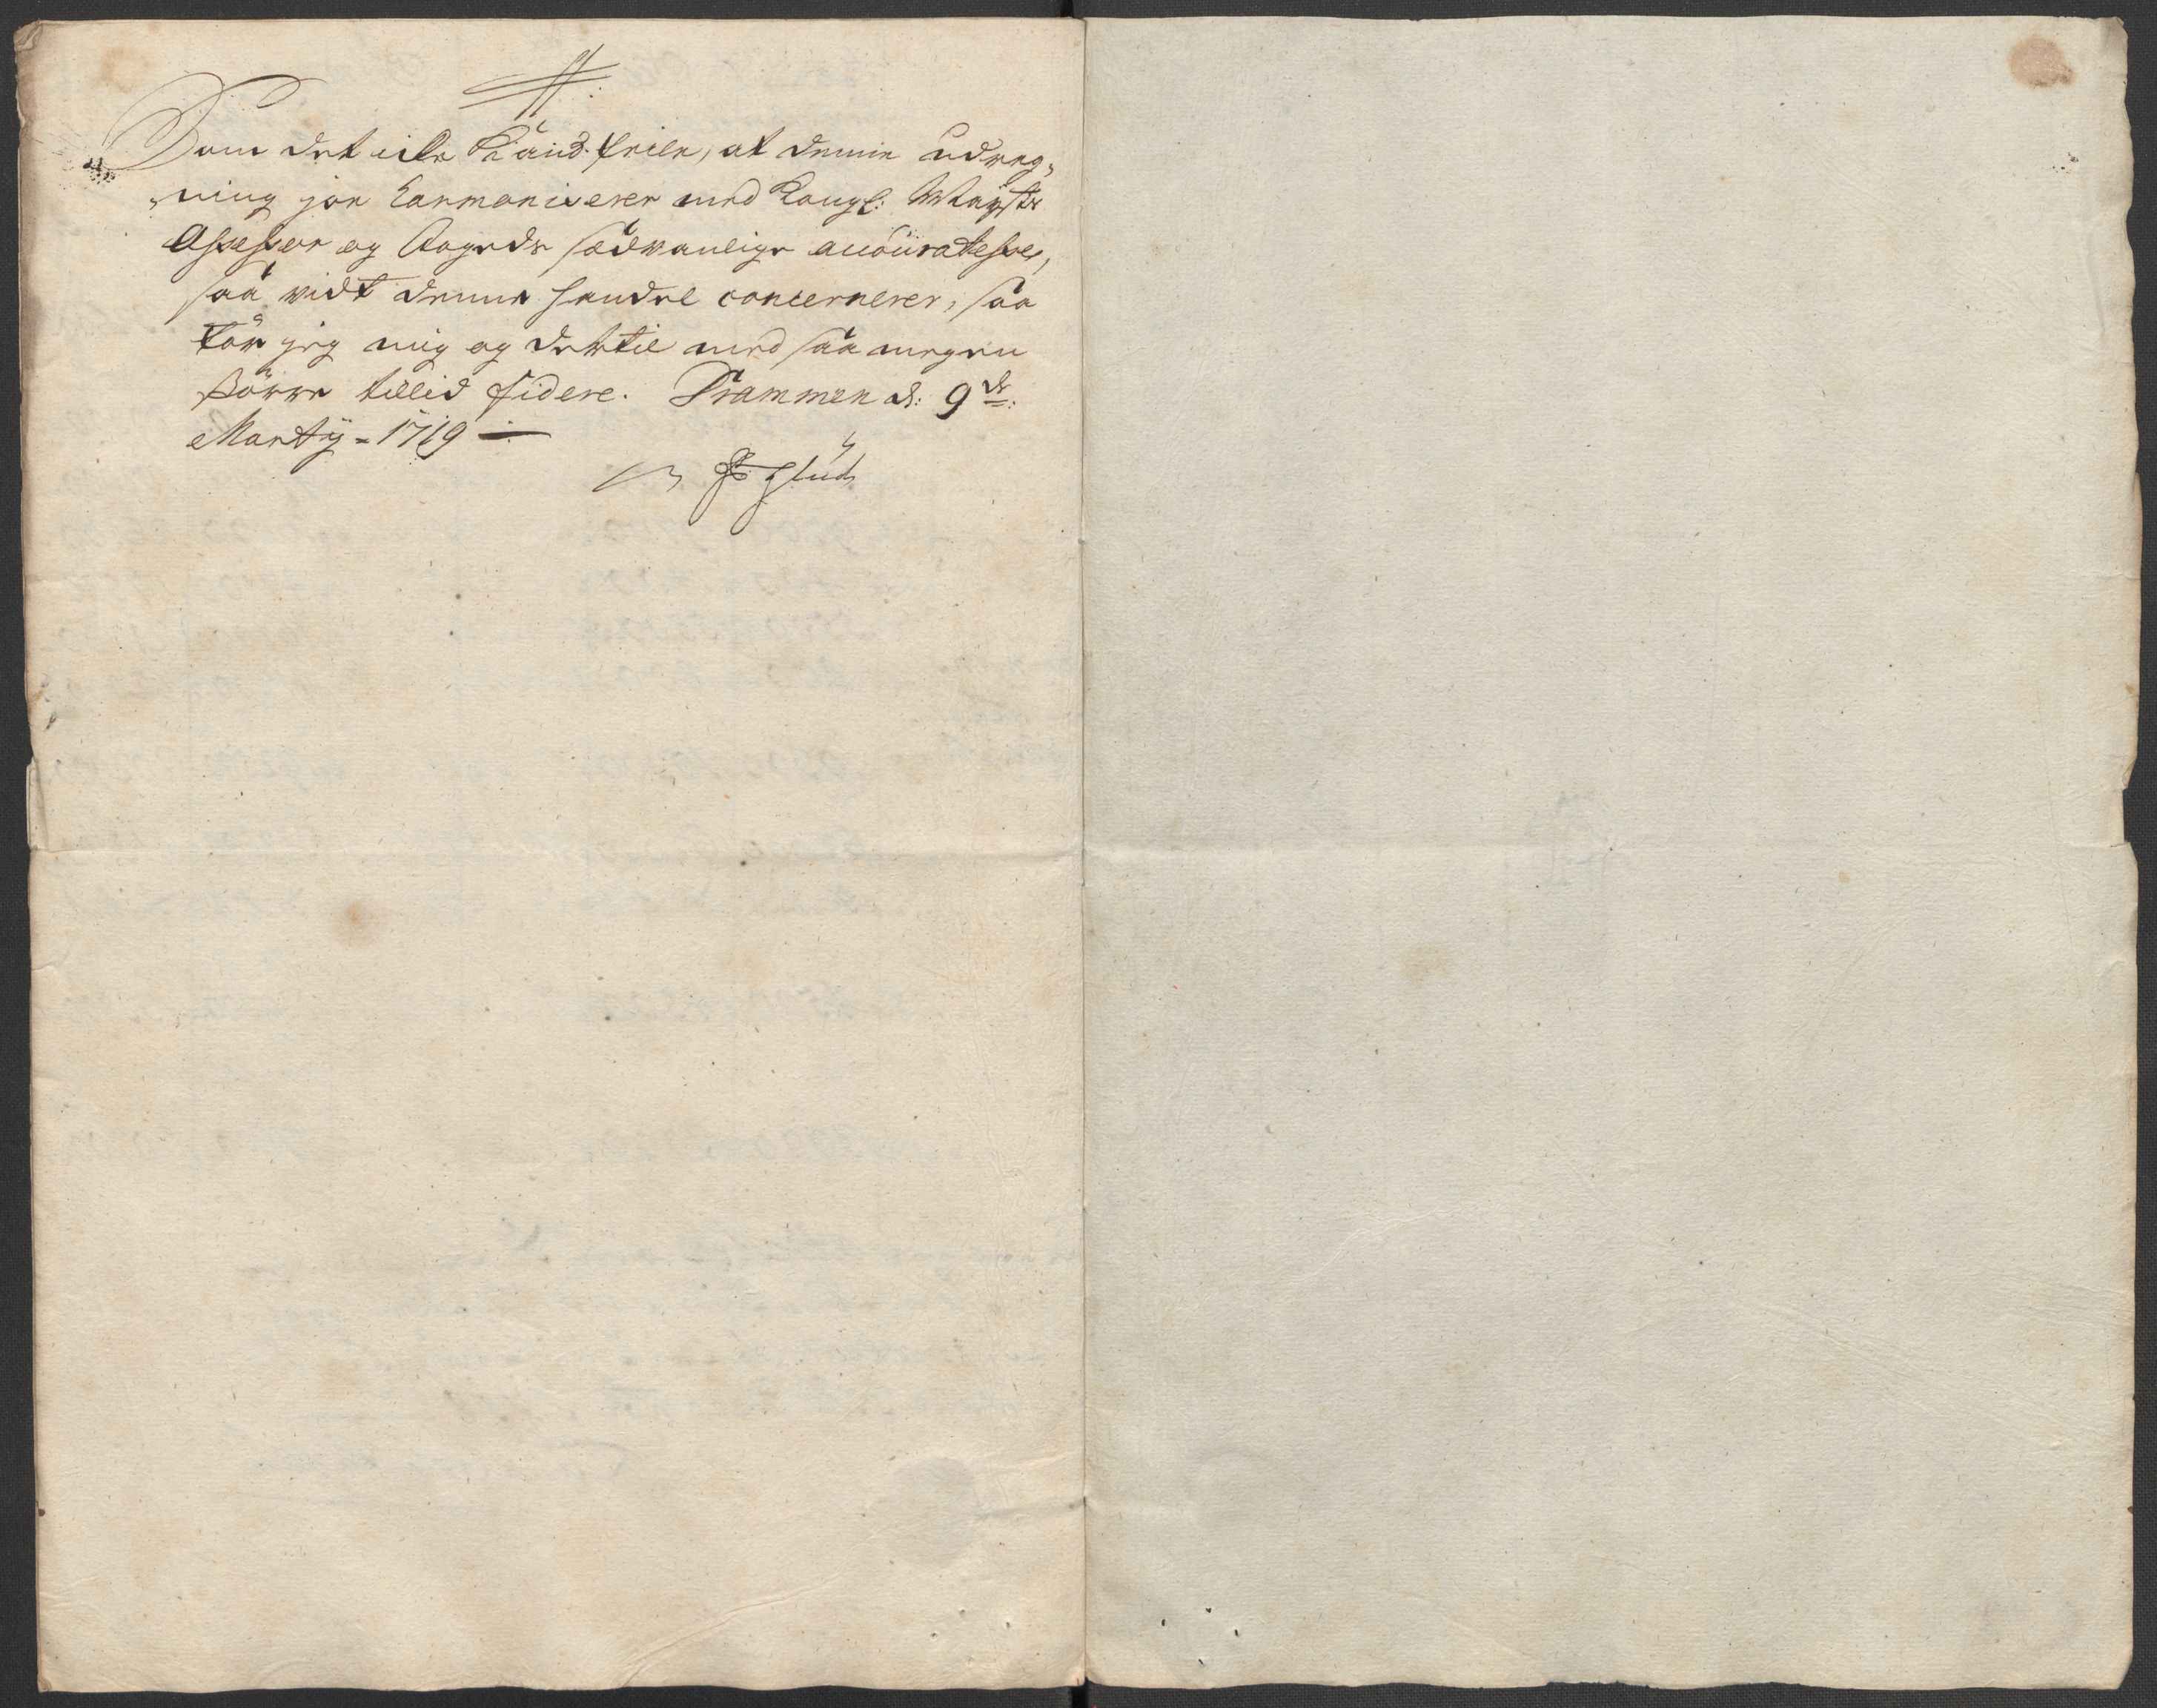 Som det icke kand feile, at denne udreg-
ning jo harmonicerer med Kongl: Mayst:
Assessor og Fogeds sædvanlige accouratesse,
saa vidt denne handel concernerer, saa
tör jeg mig og dertil med saa megen
större tillid fidere. Brammen d: 9de:
Martij - 1719 —